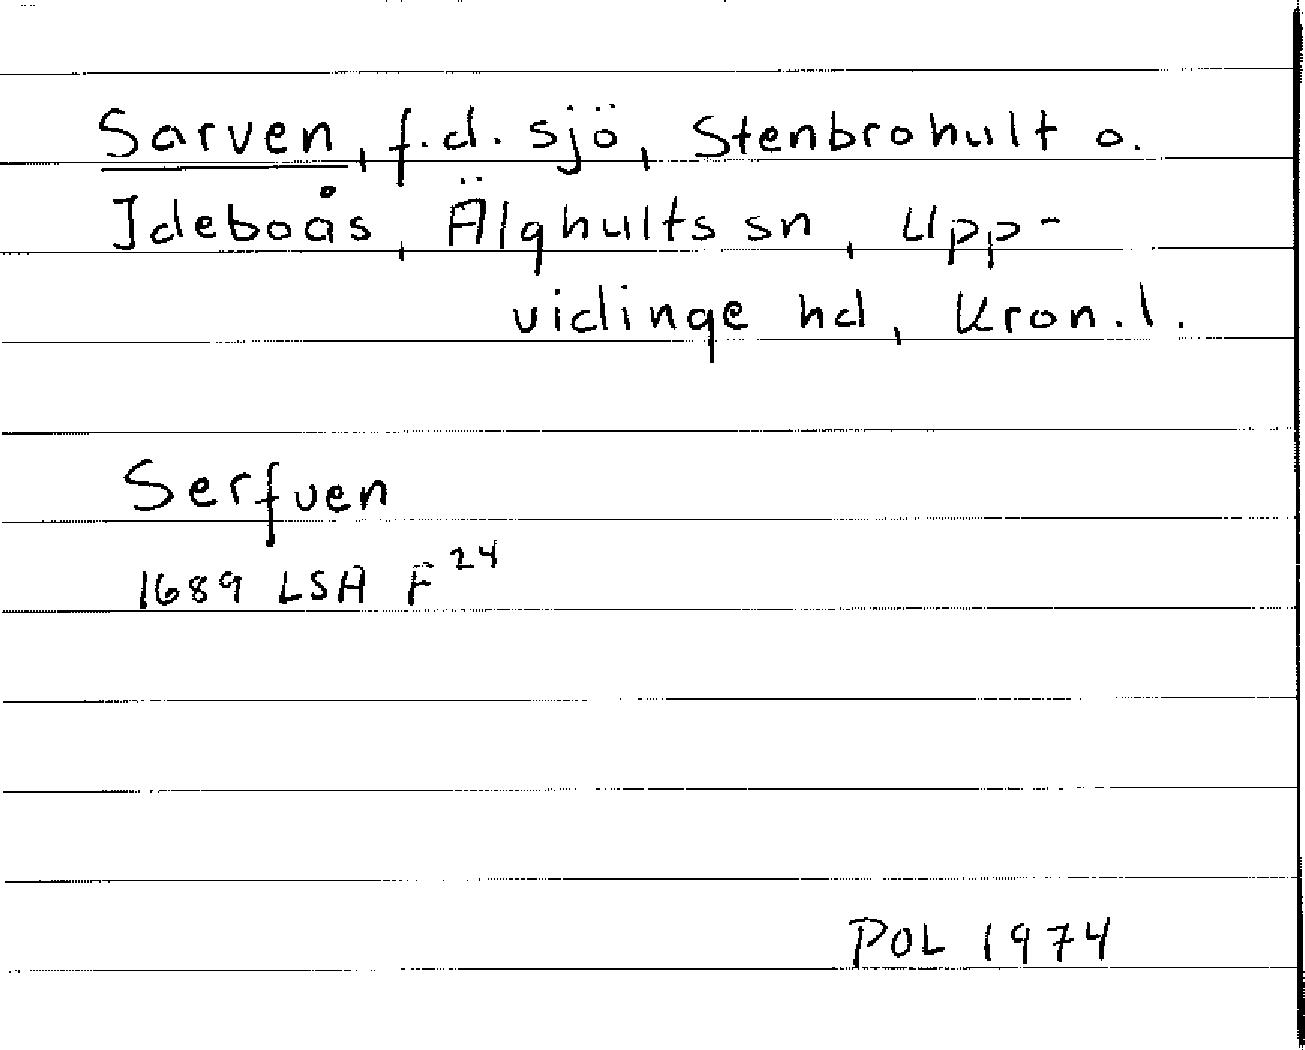 Sarven, f.d. sjö, Stenbrohult o.
Ideboås, Älghults sn, Upp-
vidinge hd, Kron.l.
Serfven
1689 LSA F 24
POL 1974